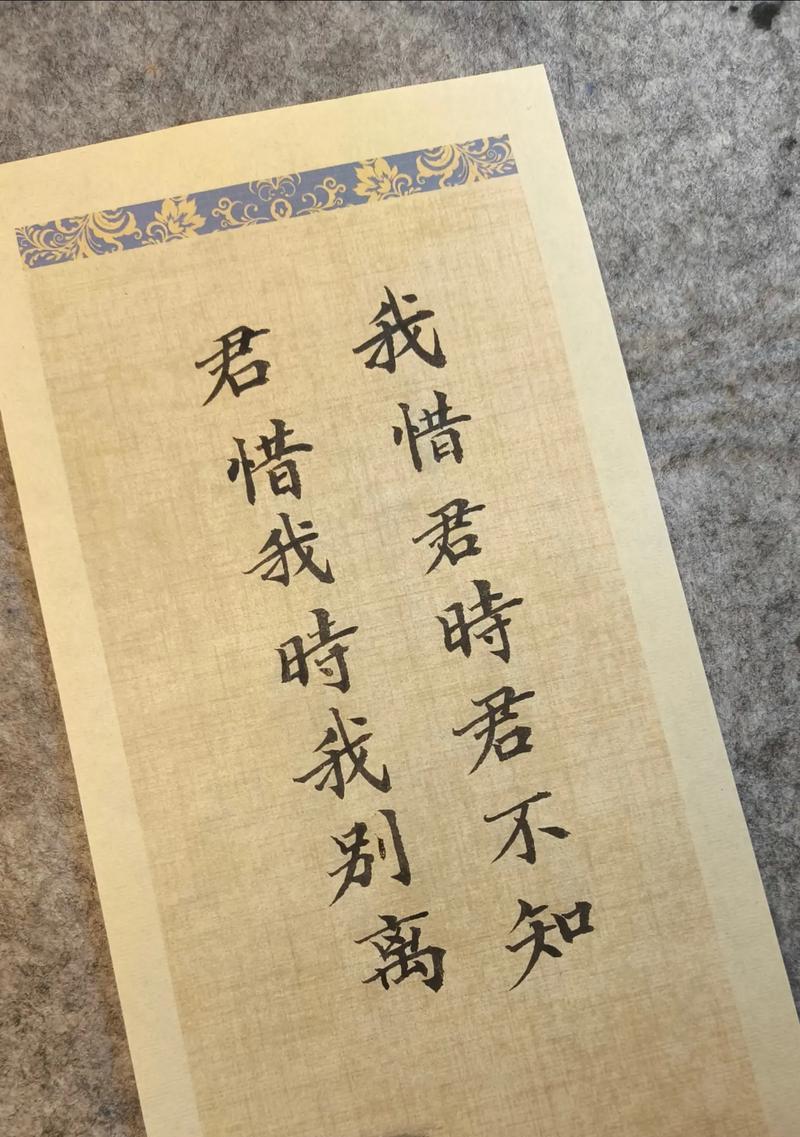 我惜君時君不知
君惜我時我别离